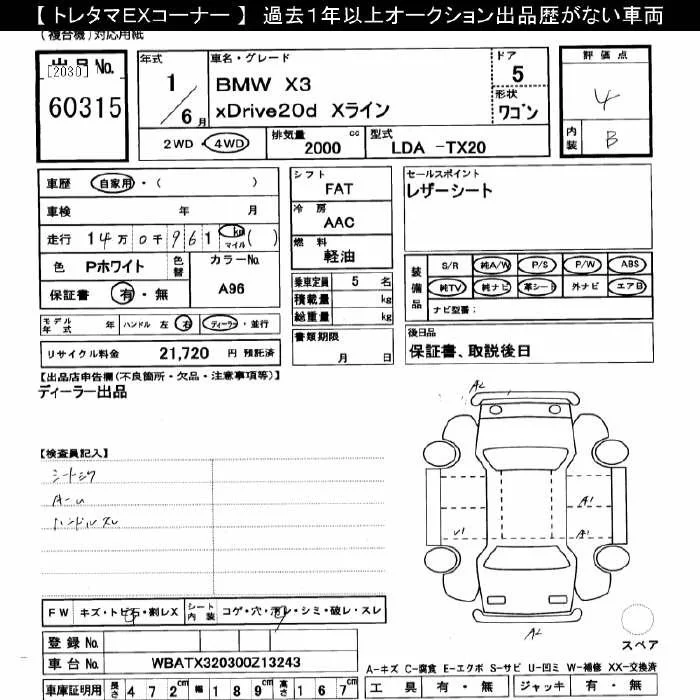 【トレタマEXコーナー】 過去1年以上オークション出品歴がない車両
(複合機)対応用紙
出品No.
[2030]
60315
年式
1/6月
車名・グレード
BMW X3
xDrive20d Xライン
ドア
5
形状
ワゴン
評価点
4
内装
B
2WD・4WD
排気量
2000 cc
型式
LDA -TX20
車歴 自家用・( )
車検 年 月
走行 14万0千961 km マイル ( )
色 Pホワイト
色替
カラーNo.
A96
保証書 有・無
モデル年式 年 ハンドル 左 右 ディーラー・並行
リサイクル料金 21,720 円 預託済
シフト
FAT
冷房
AAC
燃料
軽油
乗車定員 5 名
積載量 kg
総重量 kg
書類期限
月 日
セールスポイント
レザーシート
装備品
S/R 純A/W P/S P/W ABS
純TV 純ナビ 革シート 外ナビ エアB
ナビ型番:
後日品
保証書、取説後日
【出品店申告欄(不良箇所・欠品・注意事項等)】
ディーラー出品
【検査員記入】
シートシワ
ハンドルスレ
A2
A1
U1
A1
A2
スペア
FW キズ・トビ石・割レX
シート内装 コゲ・穴・汚レ・シミ・破レ・スレ
登録No.
車台No. WBATX320300Z13243
車庫証明用 長さ 472cm 幅 189cm 高さ 167cm
A-キズ C-腐食 E-エクボ S-サビ U-凹ミ W-補修 XX-交換済
工具 有・無 ジャッキ 有・無